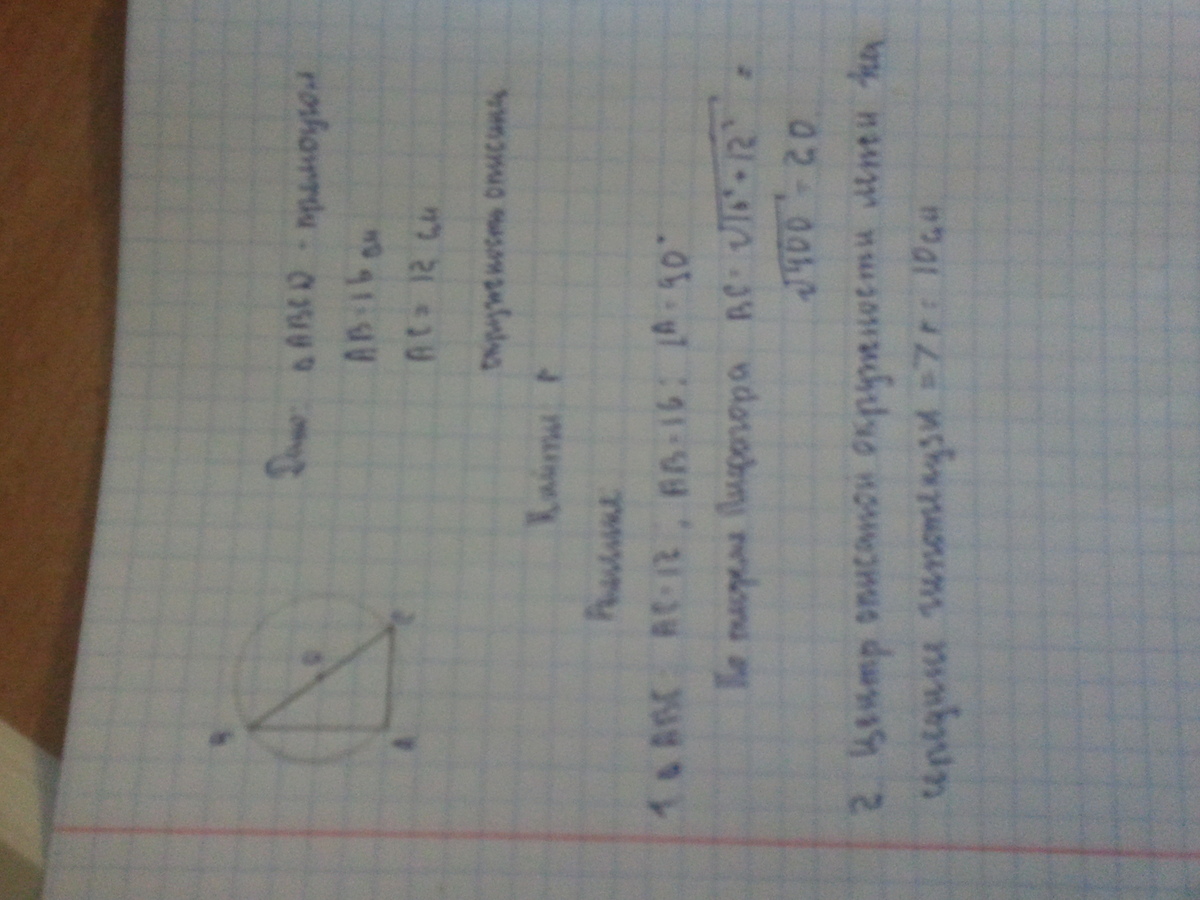 B
O
A
C
Дано: △ABCD - прямоугол
AB=16 см
AC = 12 см
окружность описана
Найти r
Решение
1 △ ABC: AC=12; AB=16; ∟A=90°
По теореме Пифагора BC=√16²+12² =
√400 = 20
2. Центр описаной окружности лежи на
середине гипотенузы => r = 10см